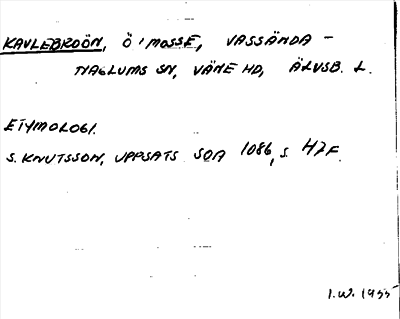 KAVLEBROÖN, Ö I MOSSE, VASSÄNDA -
NAGLUMS SN, VÄNE HD, ÄLVSB. L.
ETYMOLOGI.
S. KNUTSSON, UPPSATS SOA 1086, S. 47F.
I.W. 1955